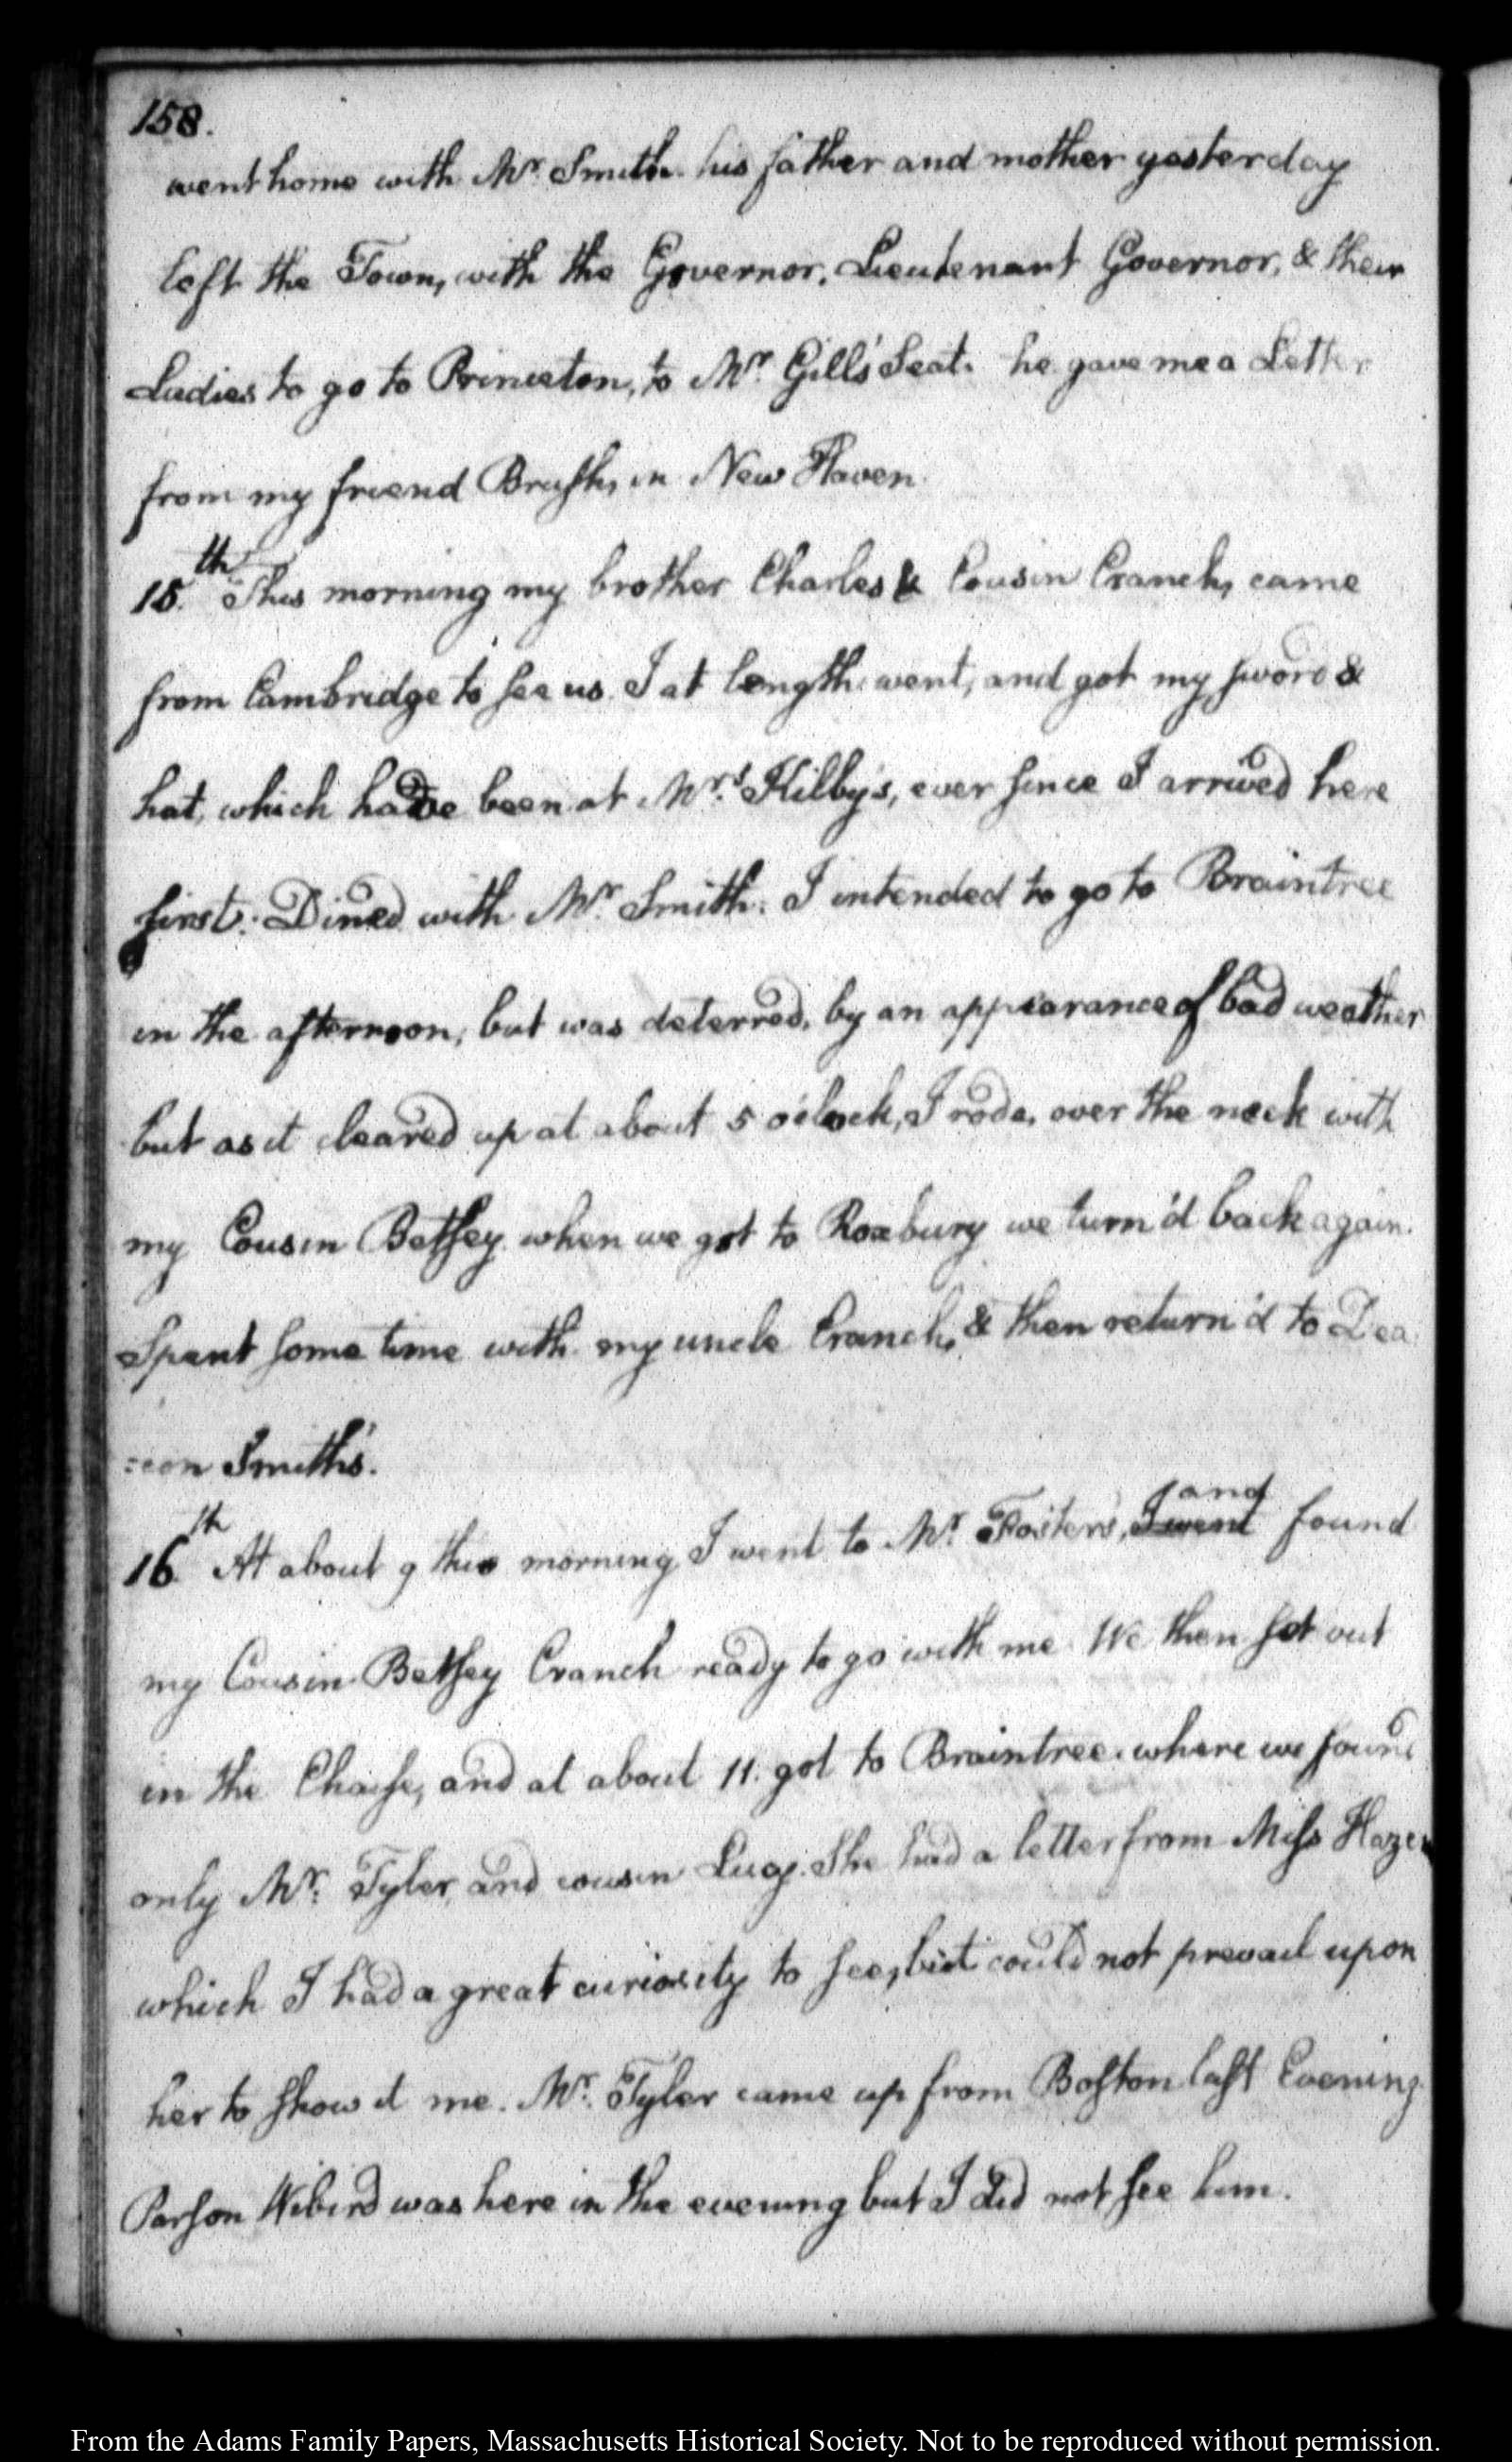 158.
went home with Mr. Smith. his father and mother yesterday
left the Town, with the Governor, Lieutenant Governor, & their
Ladies to go to Princeton, to Mr. Gill's Seat. he gave me a Letter
from my friend Brush, in New Haven.
15.th This morning my brother Charles & Cousin Cranch, came
from Cambridge to see us. I at length went, and got my sword &
hat, which have been at Mrs. Kilby's, ever since I arrived here
first. Dined with Mr. Smith. I intended to go to Braintree
in the afternoon, but was deterred, by an appearance of bad weather
but as it cleared up at about 5 o'clock, I rode, over the neck with
my Cousin Betsey. when we got to Roxbury we turn'd back again.
Spent some time with my uncle Cranch, & then return'd to Dea
=con Smith's.
16.th At about 9 this morning I went to Mr. Foster's, I went and found
my Cousin Betsey Cranch ready to go with me. We then set out
in the Chaise, and at about 11. got to Braintree. where we found
only Mr. Tyler, and cousin Lucy. She had a letter from Miss Hazen
which I had a great curiosity to see, but could not prevail upon
her to show it me. Mr. Tyler came up from Boston last Evening.
Parson Wibird was here in the evening but I did not see him.
From the Adams Family Papers, Massachusetts Historical Society. Not to be reproduced without permission.